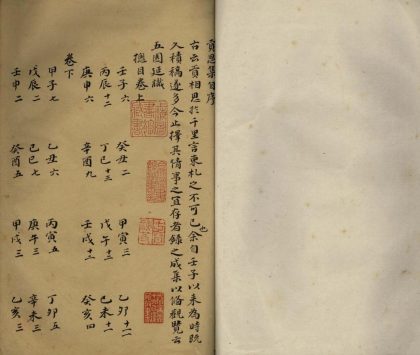 貢思集自序
古云貢相思於千里言柬札之不可已也余自壬子以来為時既
久積稿遂多今止擇其情事之宜存者錄之成集以俻觀覽云
五園廷鐵
總目卷上
壬子六 癸丑二 甲寅三 乙卯十一
丙辰十二 丁巳十三 戊午十三 己未十二
庚申六 辛酉九 壬戌十三 癸亥四
卷下
甲子七 乙丑六 丙寅五 丁卯五
戊辰二 己巳七 庚午三 辛未三
壬申二 癸酉五 甲戌三 乙亥三